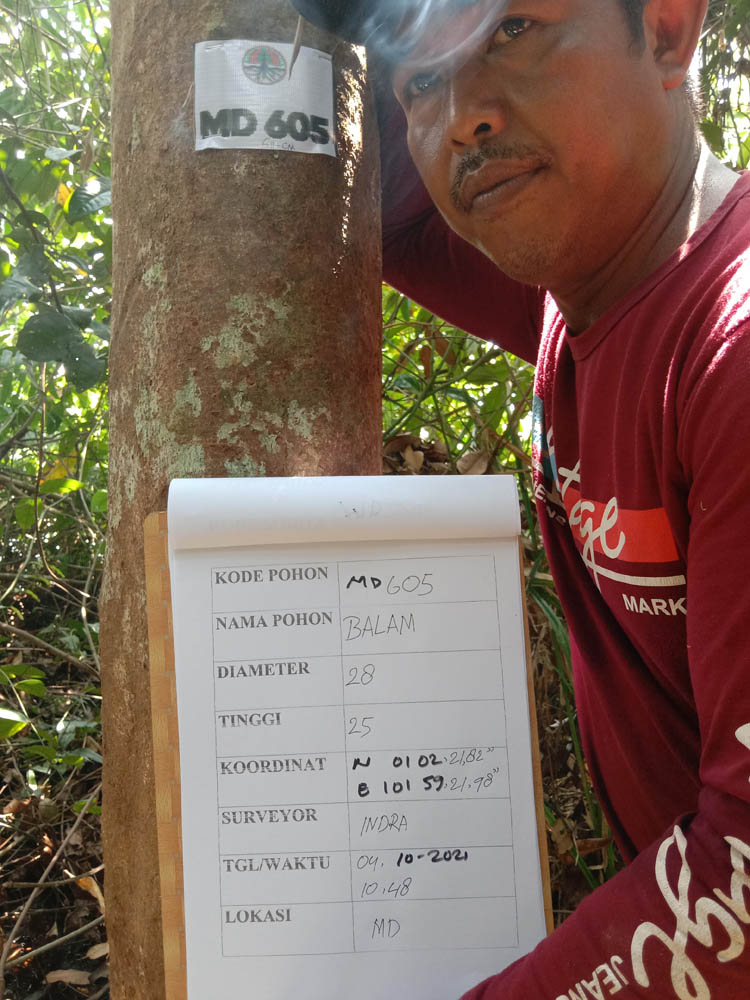 MD 605
KODE POHON MD 605
NAMA POHON BALAM
DIAMETER 28
TINGGI 25
KOORDINAT N 01 02.21,82"
E 101 59.21,98"
SURVEYOR INDRA
TGL/WAKTU 04. 10-2021
10.48
LOKASI MD
MARK
JEANS